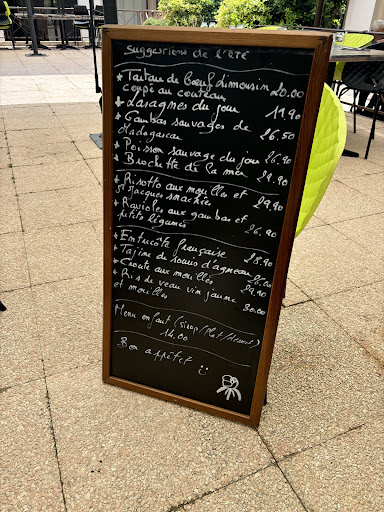 Suggestions de l'été
* Tartare de Bœuf Limousin
coupé au couteau 20.00
* Lasagnes du jour 19.90
* Gambas sauvages de
Madagascar 26.50
* Poisson sauvage du jour 26.90
* Brochette de la mer 29.90
* Risotto aux morilles et
St Jacques snackées 29.90
* Ravioles aux gambas et
petits légumes 26.90
* Entrecôte française 28.90
* Tajine de souris d'agneau 26.00
* Croute aux morilles 29.90
* Ris de veau vin jaune
et morilles 30.00
Menu enfant (sirop/Plat/dessert)
14.00
Bon appétit